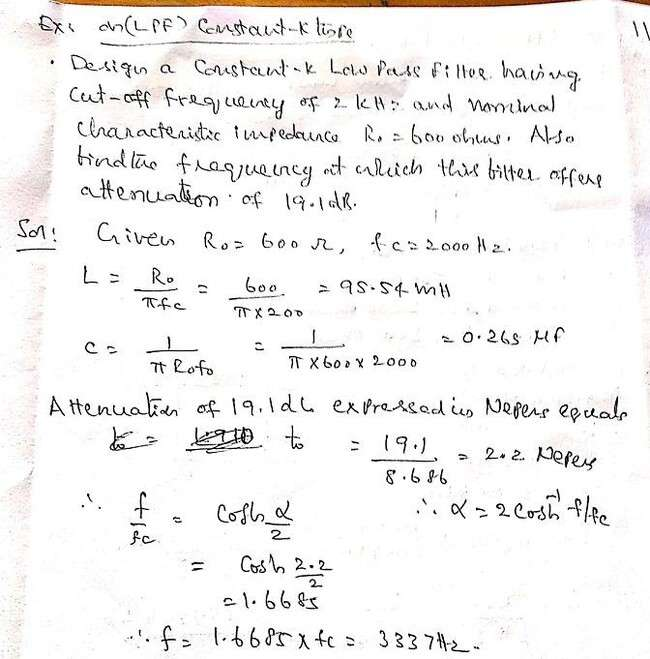 Ex: on(LPF) Constant-K type
11
· Design a Constant-K Low Pass filter having
Cut-off frequency of 2 KHz and nominal
Characteristic impedance Ro = 600 ohms. Also
find the frequency at which this filter offers
attenuation of 19.1 dB.
Sol: Given Ro = 600 Ω, fc = 2000 Hz.
L = Ro/πfc = 600/π×200 = 95.54 mH
C = 1/πRofo = 1/π×600×2000 = 0.265 Mf
Attenuation of 19.1 db expressed in Nepers equals
to = 19.1/8.686 = 2.2 Nepers
∴ f/fc = Cosh α/2 ∴ α = 2 Cosh⁻¹ f/fc
= Cosh 2.2/2
= 1.6685
∴ f = 1.6685 × fc = 3337 Hz.